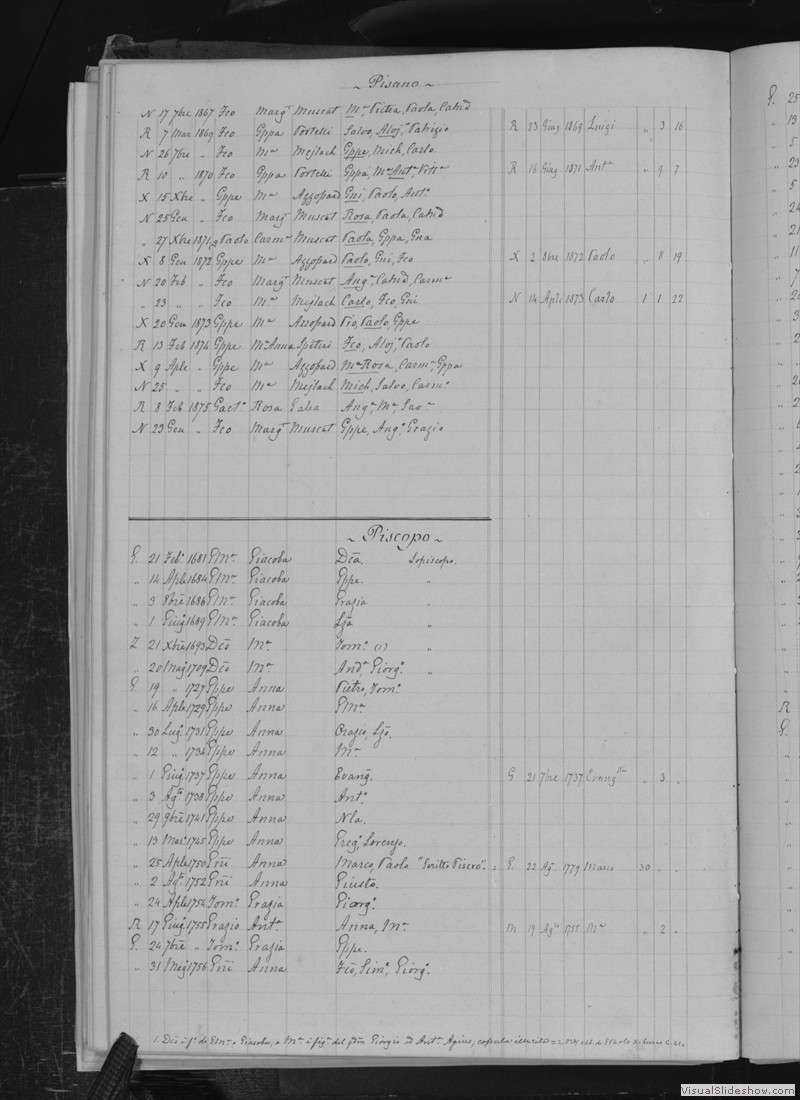 ~ Pisano ~
N 17 7bre 1867 Fco Margᵗ Muscat Mª, Pietra, Paola, Catᵈ
R 7 Mar 1869 Fco Gppa Portelli Salvo, Aloj°, Patrizio R 23 Giug 1869 Luigi „ 3 16
N 26 7bre „ Fco Mª Mejlach Gppe, Mich, Carlo
R 10 „ 1870 Fco Gppa Portelli Gppa, Mª Antª, R 16 Giug 1871 Antª „ 9 7
X 15 Xbre „ Gppe Mª Azzopard Gni, Paolo, Ant°
N 25 Gen „ Fco Margᵗ Muscat Rosa, Paola, Catᵈ
„ 27 Xbre 1871 Paolo Carmª Muscat Paola, Gppa, Gna
X 8 Gen 1872 Gppe Mª Azzopard Paolo, Gni, Fco X 2 8bre 1872 Paolo „ 8 19
N 20 Feb „ Fco Margᵗ Muscat Angª, Catᵈ, Carmª
„ 23 „ „ Fco Mª Mejlach Carlo, Fco, Gni N 14 Aple 1873 Carlo 1 1 22
X 20 Gen 1873 Gppe Mª Azzopard Pio, Paolo, Gppe
R 13 Feb 1874 Gppe Mª Anna Spiteri Fco, Aloj°, Paolo
X 9 Aple „ Gppe Mª Azzopard Mª Rosa, Carmª, Gppa
N 25 „ „ Fco Mª Mejlach Mich, Salvo, Carm°
R 8 Feb 1875 Gaet° Rosa Galea Angª, Mª, Savª
N 23 Gen „ Fco Margᵗ Muscat Gppe, Ang°, Grazio
~ Piscopo ~
G. 21 Feb° 1681 GMª Giacoba Dca. Lopiscopo.
„ 14 Aple 1684 GMª Giacoba Gppe. „
„ 3 8bre 1686 GMª Giacoba Grazia „
„ 1 Giug° 1689 GMª Giacoba Ljō „
Z 21 Xbre 1693 Dcō Mª Tom° (1) „
„ 20 Mag° 1709 Dcō Mª Andª, Giorg°. „
G. 19 „ 1727 Gppe Anna Pietro, Tom°.
„ 16 Aple 1729 Gppe Anna GMª.
„ 30 Lug° 1731 Gppe Anna Orazio, Ljō.
„ 12 „ 1734 Gppe Anna Mª
„ 1 Giug° 1737 Gppe Anna Evangᵗ. G 21 7bre 1737 Evangᵗᵃ „ 3 „
„ 3 Ag° 1738 Gppe Anna Ant°.
„ 29 9bre 1741 Gppe Anna Nla.
„ 13 Mar° 1745 Gppe Anna Greg°, Lorenzo.
„ 25 Aple 1750 Gnī Anna Marco, Paolo "Scritto Piscro". G. 22 Ag° 1779 Marco 30 „ „
„ 2 Ag° 1752 Gnī Anna Giusto.
„ 24 Aple 1754 Tom° Grazia Giorg°.
R 17 Giug° 1755 Grazio Antª Anna, Mª. M 19 Ag° 1755 Mª „ 2 „
G. 24 7bre „ Tom° Grazia Gppe.
„ 31 Mag° 1756 Gnī Anna Fcō, Sim°, Giorg°.
1. Dcō è f° di GMª e Giacoba, e Mª è figª del qdm Giorgio ed Antª Agius, copula illecita
G. 25
„ 13
„ 5
„ 23
„ 5
R
G.
VisualSlideshow.com